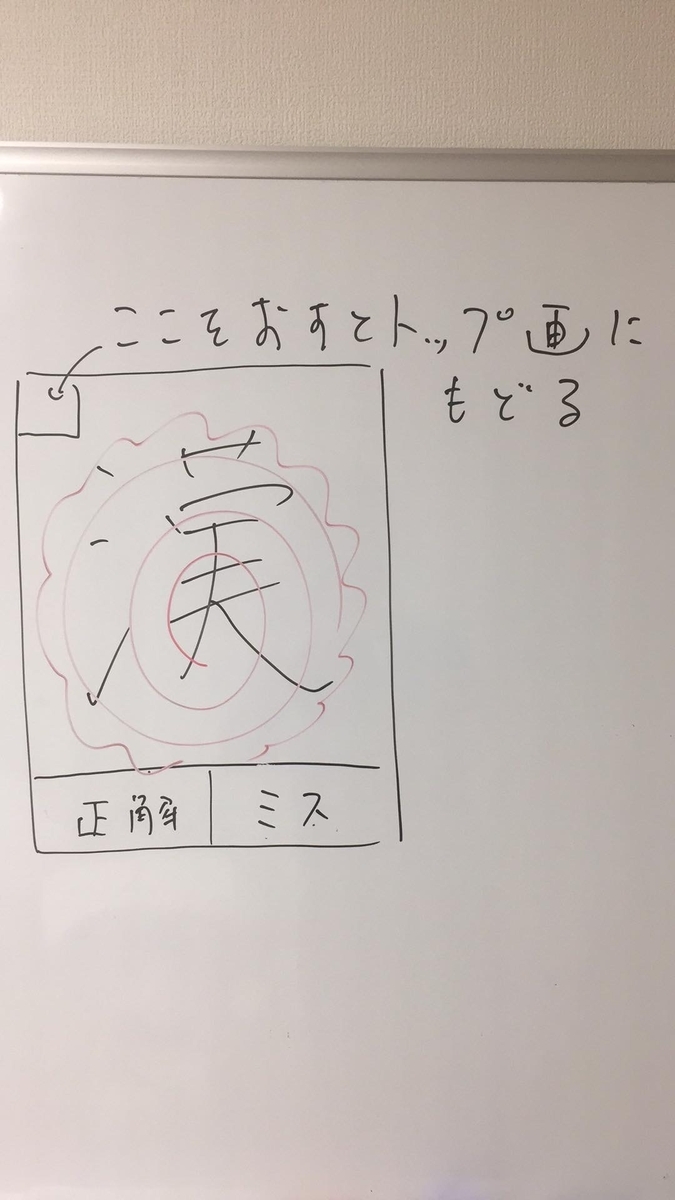 ここをおすとトップ画に
もどる
漢
正解 ミス